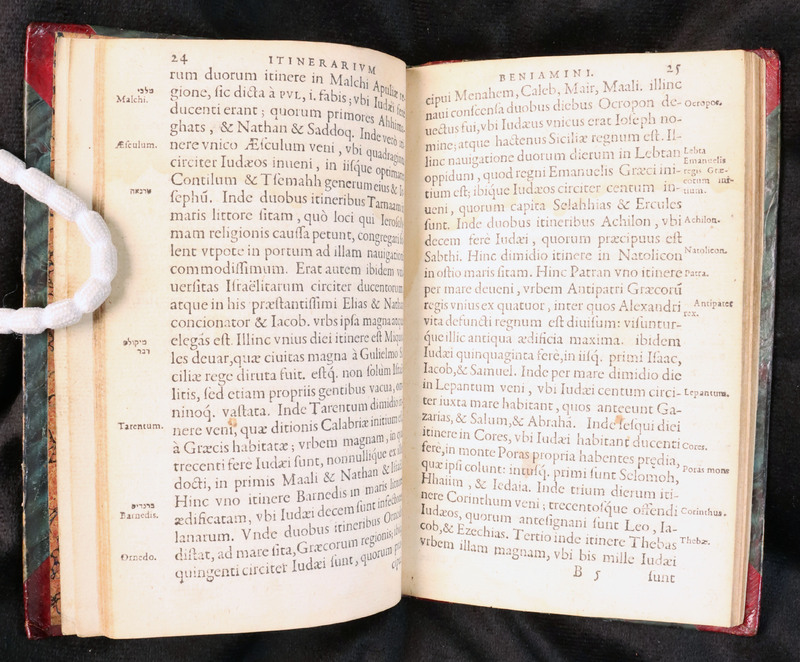 24 ITINERARIVM
rum duorum itinere in Malchi Apuliæ re-
gione, sic dicta à PVL, i. fabis; vbi Iudæi ferè
ducenti erant; quorum primores Ahhima
ghats, & Nathan & Saddoq. Inde verò iti-
nere vnico Æsculum veni, vbi quadraginta
circiter Iudæos inueni, in iisque optimates
Contilum & Tsemahh generum eius & Io
sephũ. Inde duobus itineribus Tarnaam in
maris littore sitam, quò loci qui Ierosoly
mam religionis caussa petunt, congregari so
lent vtpote in portum ad illam nauigationem
commodissimum. Erat autem ibidem vni
uersitas Israëlitarum circiter ducentorum,
atque in his præstantissimi Elias & Nathan
concionator & Iacob. vrbs ipsa magna atque
elegãs est. Illinc vnius diei itinere est Miquo
les deuar, quæ ciuitas magna à Gulielmo Si
ciliæ rege diruta fuit. estq́. non solum Israë
litis, sed etiam propriis gentibus vacua, om
ninoq́. vastata. Inde Tarentum dimidio iti
nere veni, quæ ditionis Calabriæ initium est
à Græcis habitatæ; vrbem magnam, in qua
trecenti fere Iudæi sunt, nonnullique ex his
docti, in primis Maali & Nathan & Israel.
Hinc vno itinere Barnedis in maris littore
ædificatam, vbi Iudæi decem sunt infectores
lanarum. Vnde duobus itineribus Ornedo
distat, ad mare sita, Græcorum regionis; ibi
quingenti circiter Iudæi sunt, quorum præ-
cipui
מלכי
Malchi.
Æsculum.
טרנאה
מיקולס
דבר
Tarentum.
ברנדיס
Barnedis.
Ornedo.
BENIAMINI. 25
cipui Menahem, Caleb, Mair, Maali. illinc
naui conscensa duobus diebus Ocropon de-
uectus sui, vbi Iudæus vnicus erat Ioseph no-
mine; atque hactenus Siciliæ regnum est. Il-
linc nauigatione duorum dierum in Lebtan
oppiduni, quod regni Emanuelis Græci ini-
tium est; ibique Iudæos circiter centum in-
ueni, quorum capita Selahhias & Ercules
sunt. Inde duobus itineribus Achilon, vbi
decem ferè Iudæi, quorum præcipuus est
Sabthi. Hinc dimidio itinere in Natolicon
in ostio maris sitam. Hinc Patran vno itinere
per mare deueni, vrbem Antipatri Græcorũ
regis vnius ex quatuor, inter quos Alexandri
vita defuncti regnum est diuisum: visuntur-
que illic antiqua ædificia maxima. ibidem
Iudæi quinquaginta ferè, in iisq́. primi Isaac,
Iacob, & Samuel. Inde per mare dimidio die
in Lepantum veni, vbi Iudæi centum circi-
ter iuxta mare habitant, quos anteeunt Ga-
zarias, & Salum, & Abrahã. Inde sesqui diei
itinere in Cores, vbi Iudæi habitant ducenti
fere, in monte Poras propria habentes prędia,
quæ ipsi colunt: inusq́. primi sunt Selomoh,
Hhaiim, & Iedaia. Inde trium dierum iti-
nere Corinthum veni; trecentosque offendi
Iudæos, quorum antesignani sunt Leo, Ia-
cob, & Ezechias. Tertio inde itinere Thebas
vrbem illam magnam, vbi bis mille Iudæi
B 5 sunt
Ocropos.
Lebta
Emanuelis
regis Græ-
corum ini-
tium.
Achilon.
Natolicon.
Patra.
Antipater
rex.
Lepantum.
Cores.
Poras mons
Corinthus.
Thebæ.